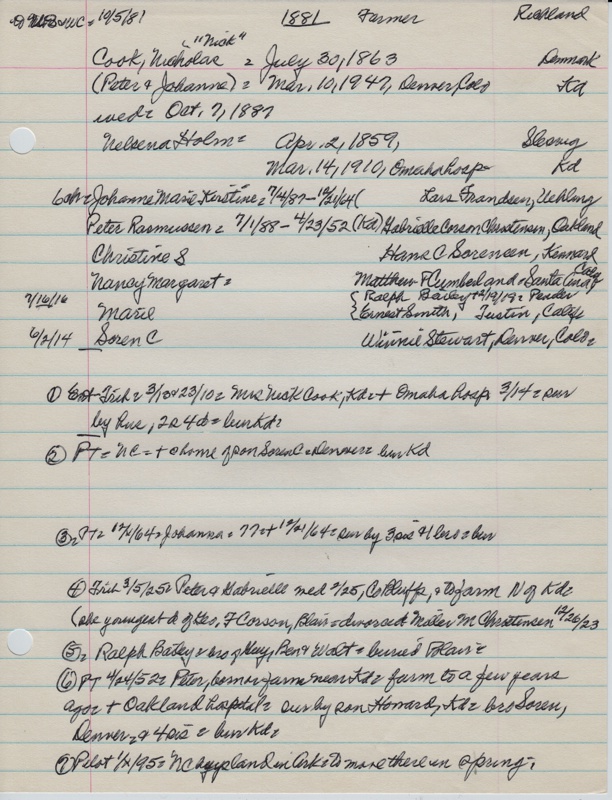 1881 Farmer Richland
"Nick"
Cook, Nicholas = July 30, 1863 Denmark
(Peter & Johanne) = Mar. 10, 1947, Denver, Colo Kd
wed = Oct. 7, 1887
Nelsena Holm = Apr. 2, 1859, Slesvig
Mar. 14, 1910, Omaha hosp Kd
6 ch = Johanne Marie Kirstine = 7/4/87 - 12/21/64 ( Lars Frandsen, Uehling
Peter Rasmussen = 7/1/88 - 4/23/52 (Kd) Gabrielle Corson Christensen, Oakland
Christine S Hans C Sorensen, Kennard
Nancy Margaret = Matthew F Cumberland = Santa Ana, Calif
7/16/16 { Ralph Bailey + 2/19/19 = Pender
Marie { Ernest Smith, Tustin, Calif
6/2/14 Soren C Winnie Stewart, Denver, Colo =
① Ent = 3/18 & 23/10 = Mrs Nick Cook, Kd = + Omaha hosp 3/14 = sur
by hus, 2 s 4 d = bur Kd =
② PT = NC = + @ home of son Soren C = Denver = bur Kd
③ = PT = 12/ /64 = Johanna = 77 = + 12/21/64 = sur by 3 sis & 1 bro = bur
④ 3/5/25 = Peter & Gabrielle wed 2/25, Co Bluffs, = to farm N of Kd =
(she youngest d of Geo. F Corson, Blair = divorced Miller M Christensen 12/26/23
⑤ = Ralph Bailey = bro of Guy, Ben & Walt = buried Blair =
⑥ PT 4/24/52 = Peter, born on farm near Kd = farm to a few years
ago = + Oakland hospital = sur by son Howard, Kd = bro Soren,
Denver = & 4 sis = bur Kd =
⑦ Pilot 1/ /95 = NC buys land in Ark = to move there in spring.